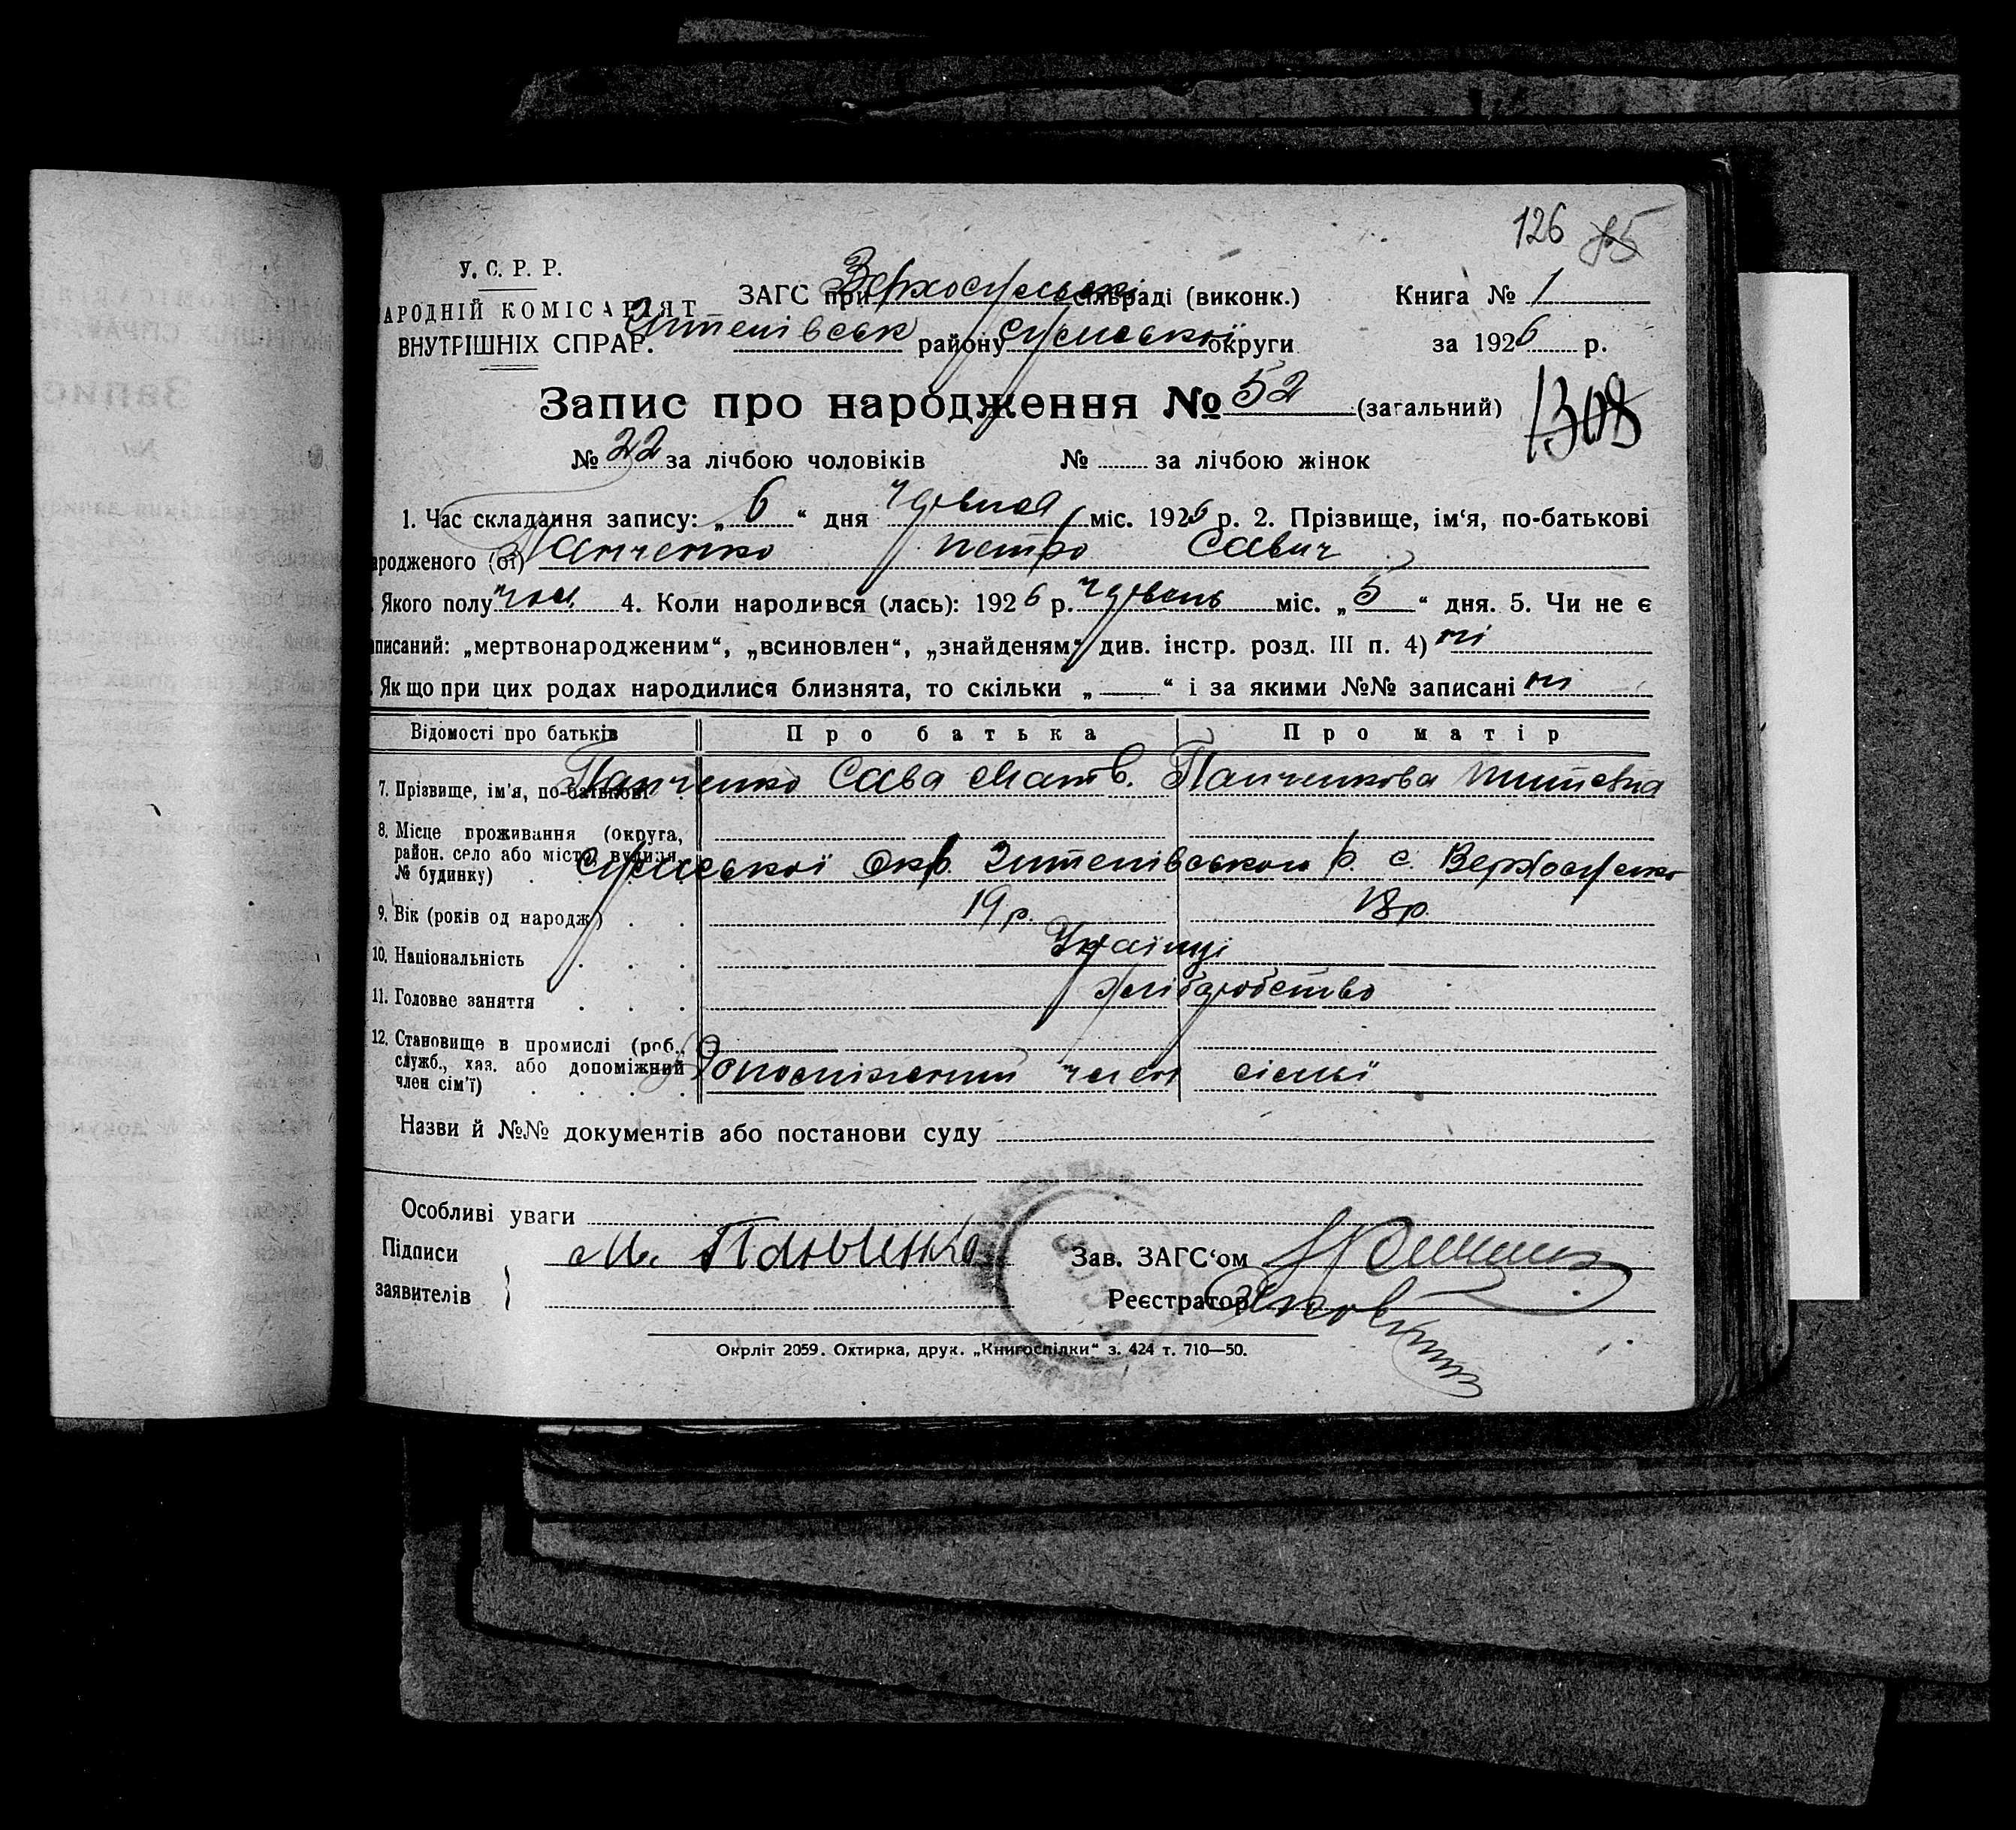 126 85
У. С. Р. Р.
АРОДНІЙ КОМІСАРІЯТ
ВНУТРІШНІХ СПРАР.
ЗАГС при Верхосульскі сільраді (виконк.) Книга № 1
Штепівськ району Сумської округи за 1926 р.
Запис про народження № 52 (загальний) 1308
№ 22 за лічбою чоловіків № за лічбою жінок
1. Час складання запису: „ 6 “ дня червня міс. 1926 р. 2. Прізвище, ім‘я, по-батькові
ародженого (ої) Панченко Петро Савич
Якого полу чол. 4. Коли народився (лась): 1926 р. червень міс. „ 5 “ дня. 5. Чи не є
аписаний: „мертвонародженим“, „всиновлен“, „знайденям“ див. інстр. розд. III п. 4) ні
Якщо при цих родах народилися близнята, то скільки „ “ і за якими №№ записані ні
Відомості про батьків Про батька Про матір
7. Прізвище, ім‘я, по-батькові Панченко Сава Матв. Панченкова
8. Місце проживання (округа,
район. село або місто, вулиця,
№ будинку) Сумської Окр. Штепівського р. с. Верхосулка
9. Вік (років од народж.) 19 р. 18 р.
10. Національність Українці
11. Головне заняття Хліборобство
12. Становище в промислі (роб.,
служб., хаз. або допоміжний
член сім‘ї) Допоміжний член сімьї
Назви й №№ документів або постанови суду
Особливі уваги
Підписи М. Панченко Зав. ЗАГС‘ом
заявителів Реєстратор
Окрліт 2059. Охтирка, друк. „Книгоспілки“ з. 424 т. 710—50.